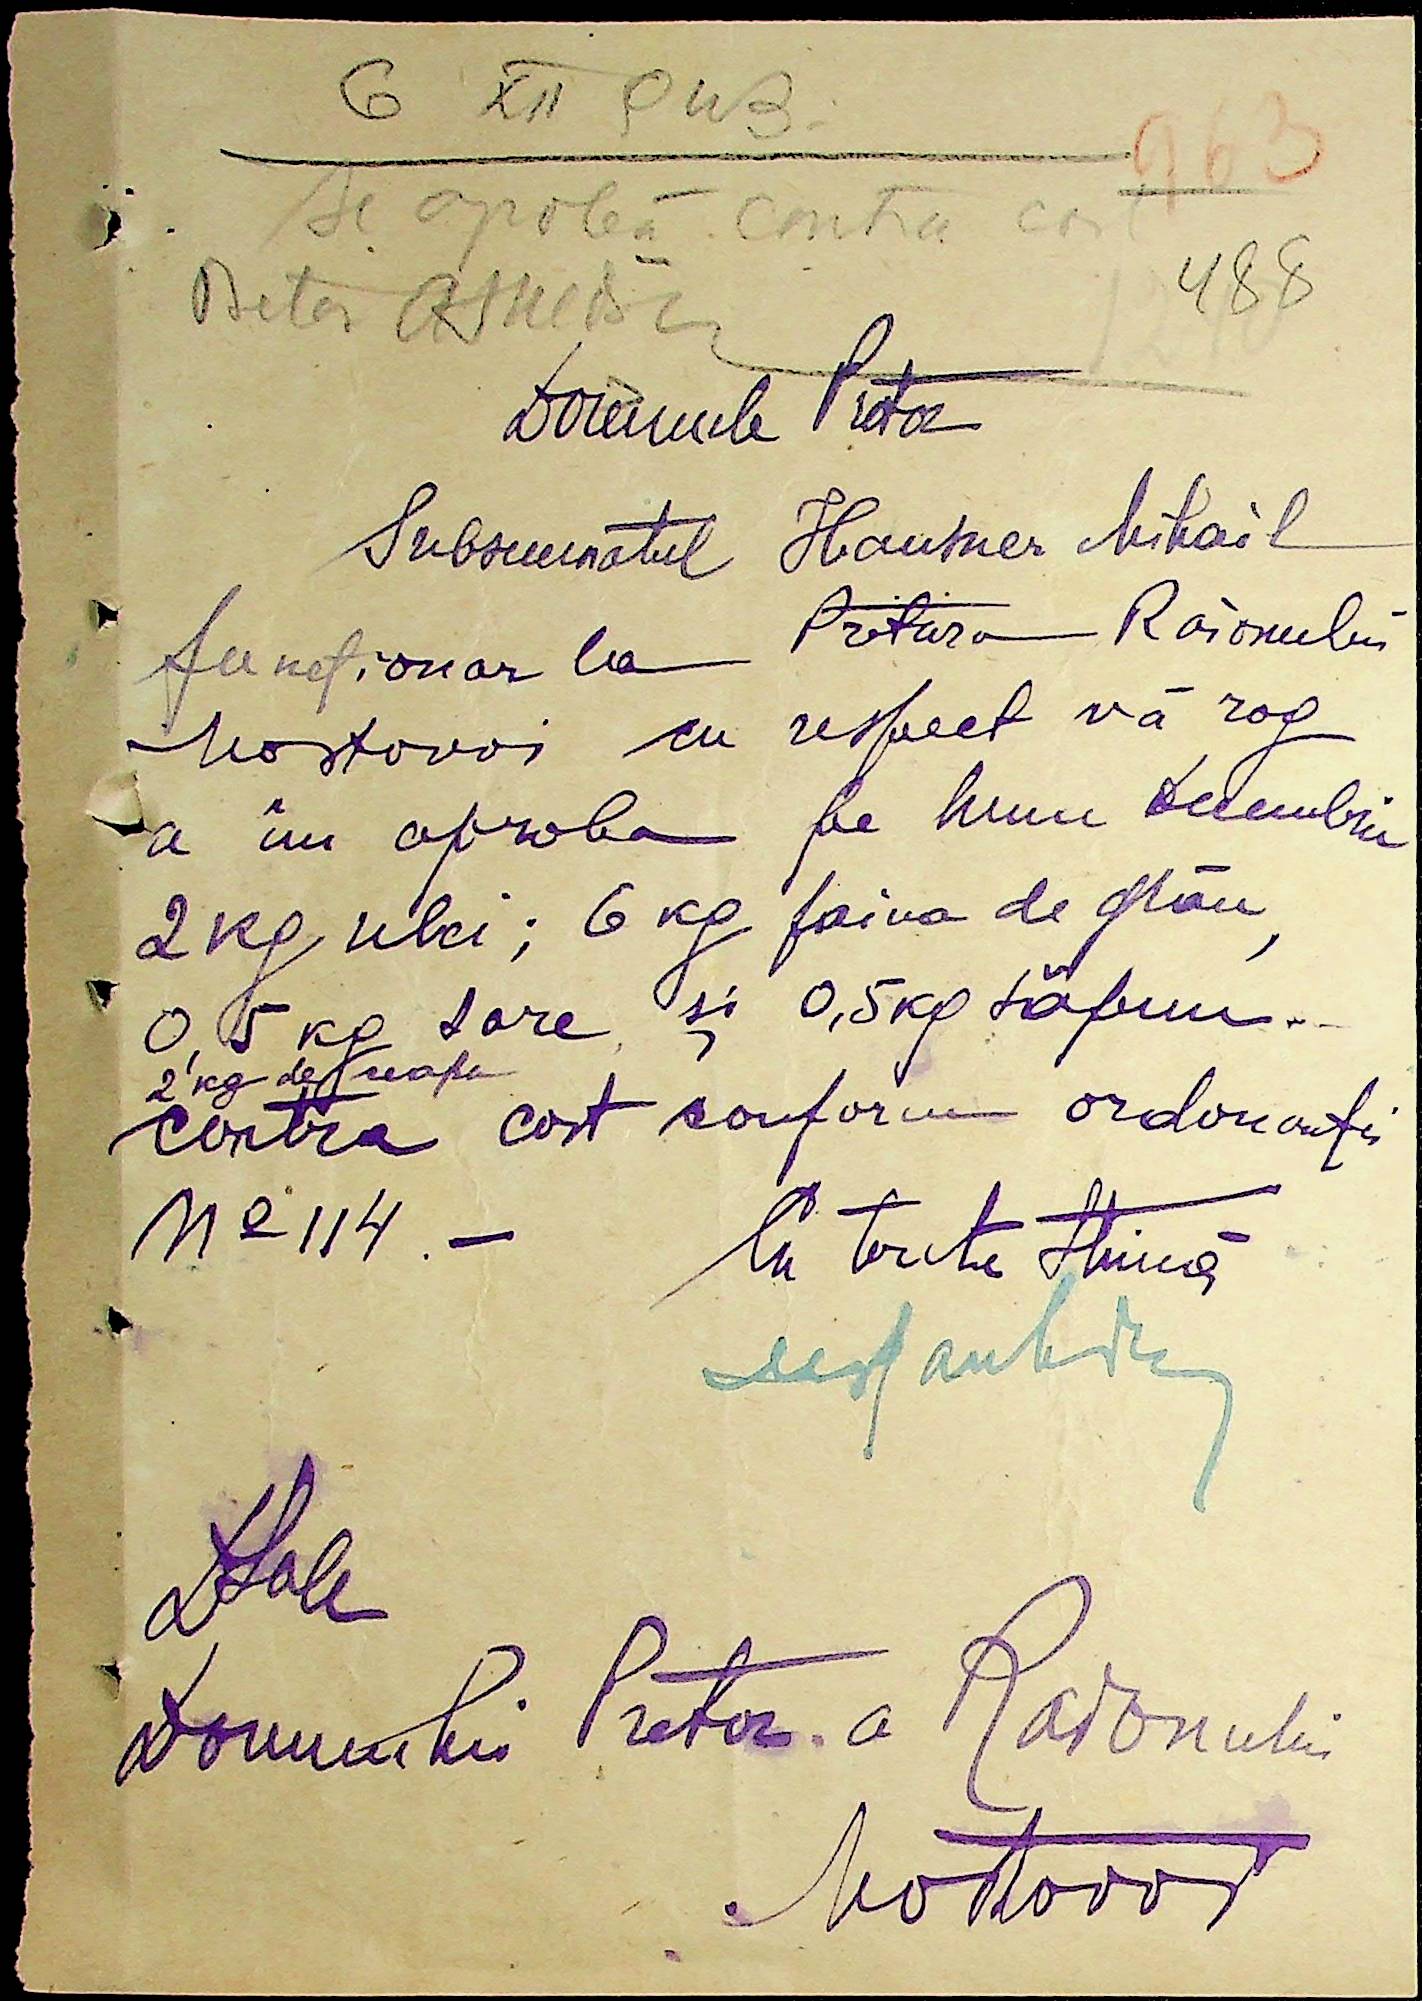 6 XII 943.
963
Se aprobă contra cost
488
Pretor
Domnule Pretor
Subsemnatul Hausner Mihail
funcționar la Pretura Raionului
Mostovoi cu respect vă rog
a îmi aproba pe luna Decembrie
2 kg ulei; 6 kg faina de grâu,
0,5 kg sare și 0,5 kg săpun.-
2 kg de ceapa
contra cost conform ordonanței
Nº 114.-
Cu toata stimă
D-sale
Domnului Pretor a Raionului
Mostovoi